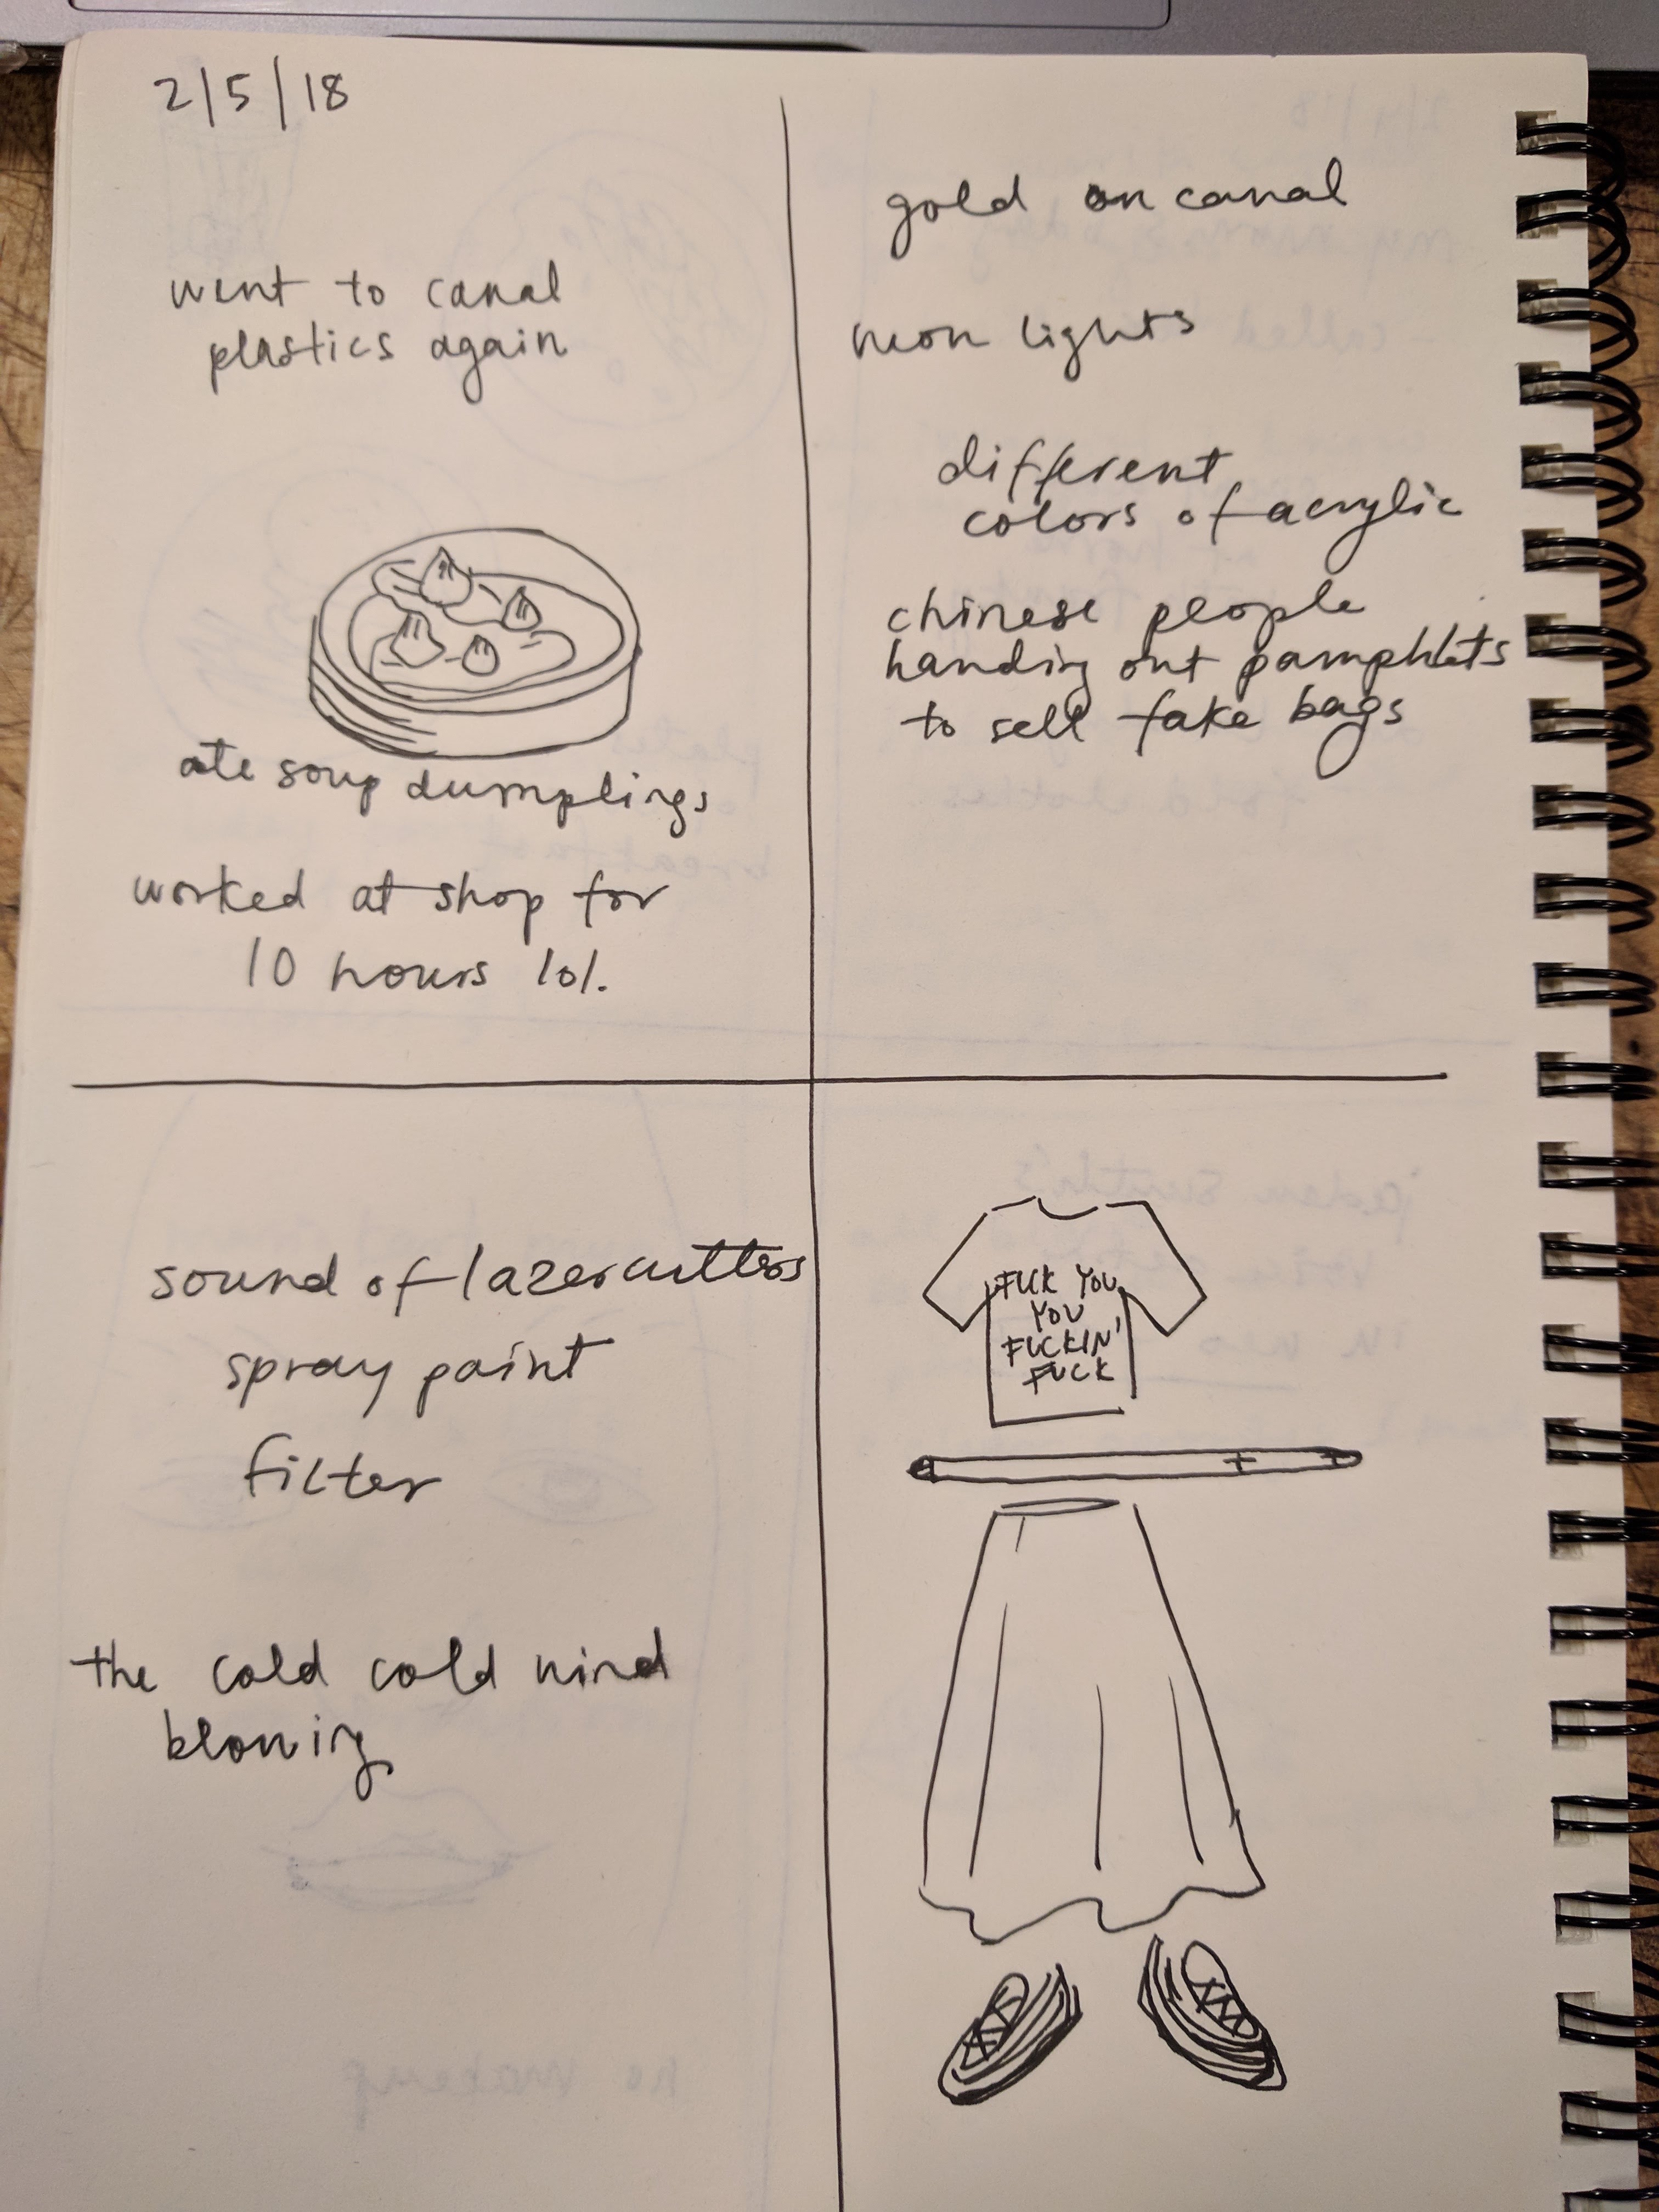 2/5/18
went to canal
plastics again
ate soup dumplings
worked at shop for
10 hours lol.
gold on canal
neon lights
different
colors of acrylic
chinese people
handing out pamphlets
to sell fake bags
sound of lazercutters
spray paint
filter
the cold cold wind
blowing
FUCK YOU
YOU
FUCKIN'
FUCK